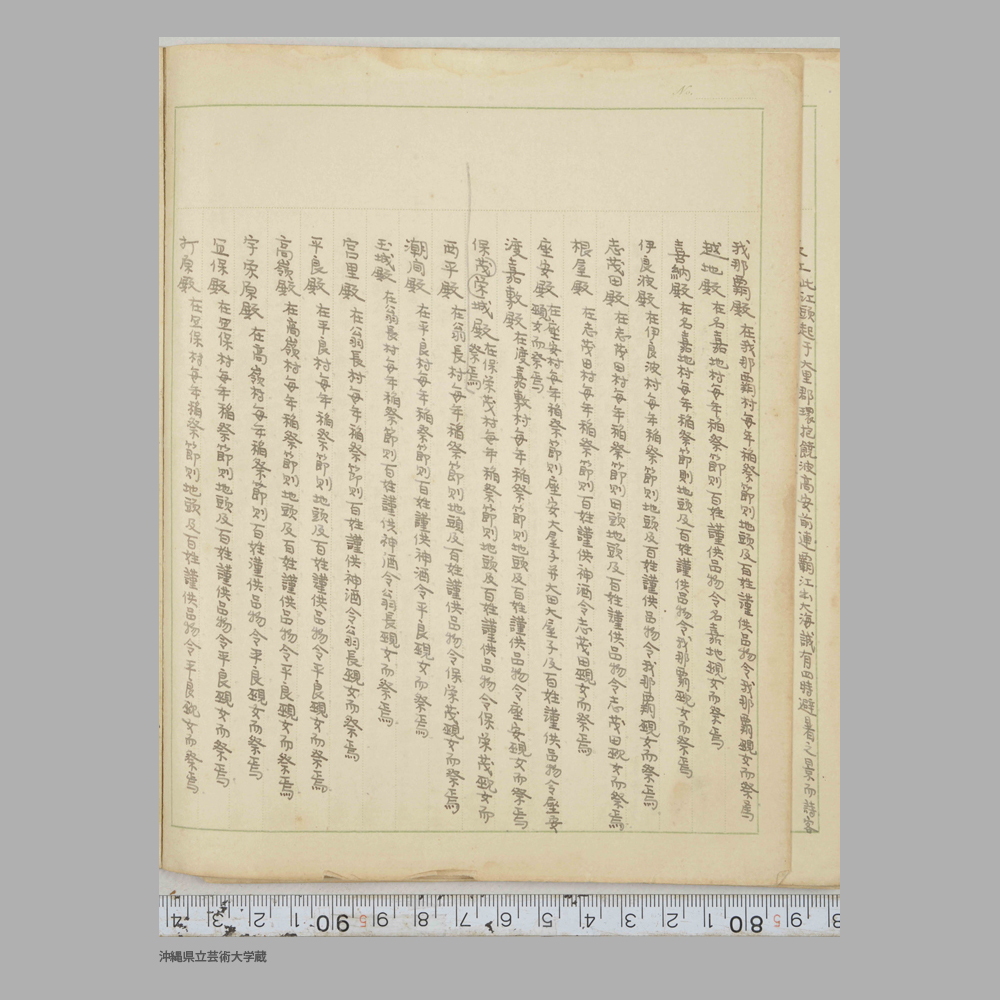 此江頭起于大里郡環抱饒波高安前連覇江出大海誠有四時避暑之景而
我那覇殿 在我那覇村毎年稲祭節則地頭及百姓謹供品物令我那覇覡女而祭焉
越地殿 在名嘉地村毎年稲祭節則百姓謹供品物令名嘉地覡女而祭焉
喜納殿 在名嘉地村毎年稲祭節則地頭及百姓謹供品物令我那覇覡女而祭焉
伊良波殿 在伊良波村毎年稲祭節則地頭及百姓謹供品物令我那覇覡女而祭焉
志茂田殿 在志茂田村毎年稲祭節則田頭地頭及百姓謹供品物令志茂田覡女而祭焉
根屋殿 在志茂田村毎年稲祭節則百姓謹供神酒令志茂田覡女而祭焉
座安殿 在座安村毎年稲祭節則座安大屋子并大田大屋子及百姓謹供品物令座安
覡女而祭焉
渡嘉敷殿 在渡嘉敷村毎年稲祭節則地頭及百姓謹供品物令座安覡女而祭焉
保茂栄城殿 在保栄茂村毎年稲祭節則地頭及百姓謹供品物令保栄茂覡女而
祭焉
西平殿 在翁長村毎年稲祭節則地頭及百姓謹供品物令保栄茂覡女而祭焉
潮洵殿 在平良村毎年稲祭節則百姓謹供神酒令平良覡女而祭焉
玉城殿 在翁長村毎年稲祭節則百姓謹供神酒令翁長覡女而祭焉
宮里殿 在翁長村毎年稲祭節則百姓謹供神酒令翁長覡女而祭焉
平良殿 在平良村毎年稲祭節則地頭及百姓謹供品物令平良覡女而祭焉
高嶺殿 在高嶺村毎年稲祭節則地頭及百姓謹供品物令平良覡女而祭焉
宇栄原殿 在高嶺村毎年稲祭節則百姓謹供品物令平良覡女而祭焉
宜保殿 在宜保村毎年稲祭節則地頭及百姓謹供品物令平良覡女而祭焉
打原殿 在宜保村毎年稲祭節則地頭及百姓謹供品物令平良覡女而祭焉
4 3 2 1 90 5 9 8 7 6 5 4 3 2 1 80 5 9 8
沖縄県立芸術大学蔵